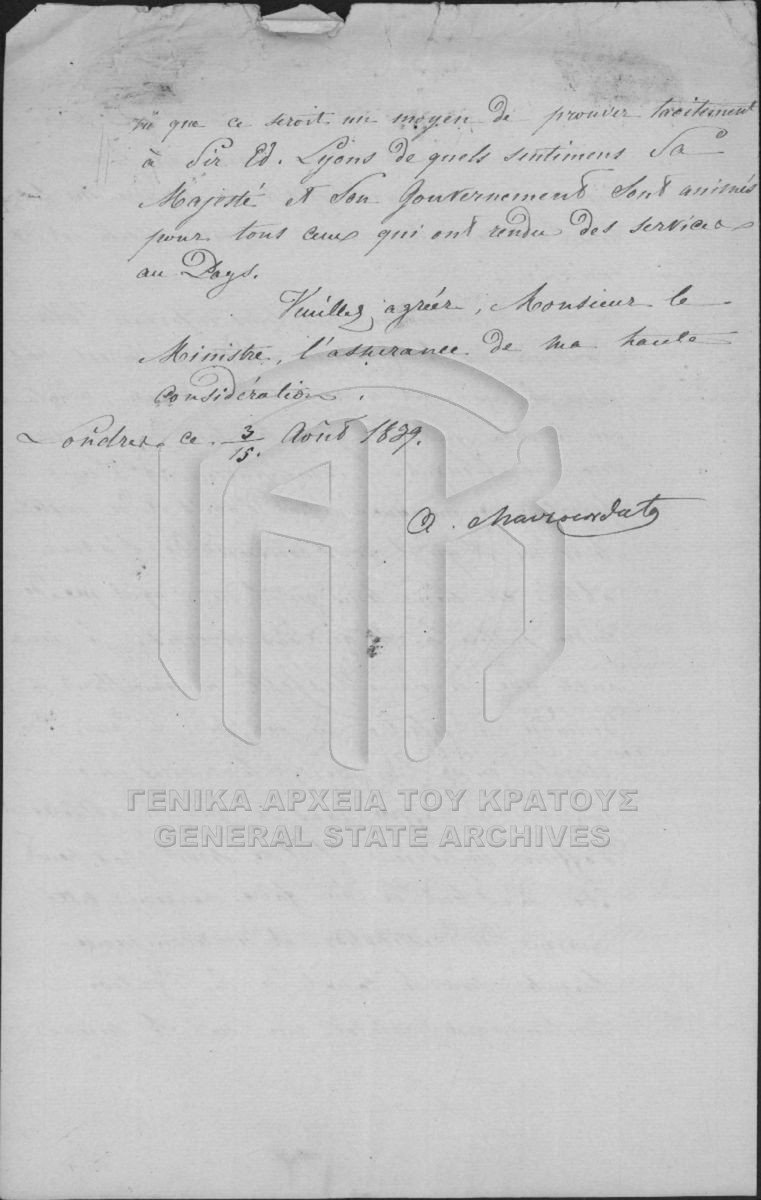 que ce seroit un moyen de prouver tacitement
à Sir Ed. Lyons de quels sentimens Sa
Majesté et Son Gouvernement sont animés
pour tous ceux qui ont rendu des services
au Pays.
Veuillez agréer, Monsieur le
Ministre, l'assurance de ma haute
considération.
Londres ce 3/15. Août 1839.
A. Mavrocordato
ΓΕΝΙΚΑ ΑΡΧΕΙΑ ΤΟΥ ΚΡΑΤΟΥΣ
GENERAL STATE ARCHIVES